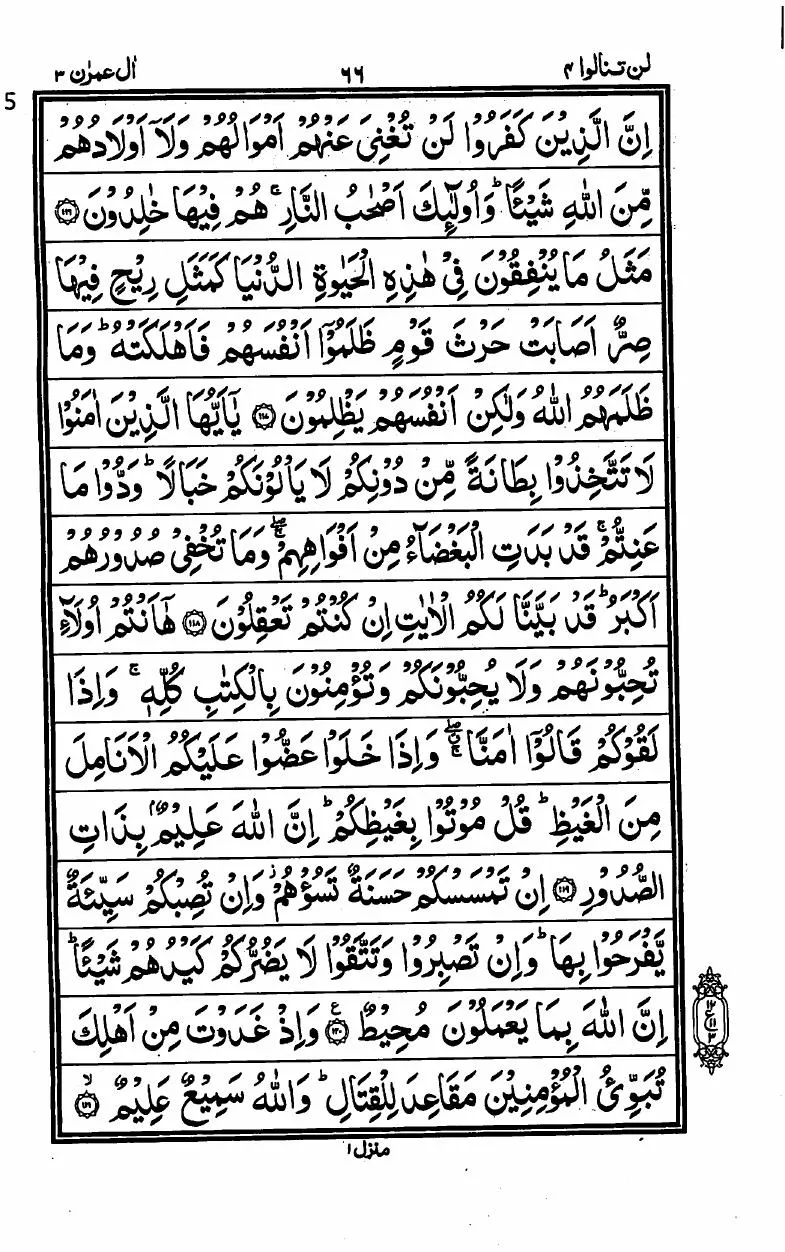 لن تنالوا ۴
۶۶
اٰل عمرٰن ۳
5
اِنَّ الَّذِيْنَ كَفَرُوْا لَنْ تُغْنِيَ عَنْهُمْ اَمْوَالُهُمْ وَلَآ اَوْلَادُهُمْ
مِّنَ اللّٰهِ شَيْـًٔا ؕ وَاُولٰٓئِكَ اَصْحٰبُ النَّارِ ۚ هُمْ فِيْهَا خٰلِدُوْنَ ﴿۱۱۶﴾
مَثَلُ مَا يُنْفِقُوْنَ فِيْ هٰذِهِ الْحَيٰوةِ الدُّنْيَا كَمَثَلِ رِيْحٍ فِيْهَا
صِرٌّ اَصَابَتْ حَرْثَ قَوْمٍ ظَلَمُوْٓا اَنْفُسَهُمْ فَاَهْلَكَتْهُ ؕ وَمَا
ظَلَمَهُمُ اللّٰهُ وَلٰكِنْ اَنْفُسَهُمْ يَظْلِمُوْنَ ﴿۱۱۷﴾ يٰٓاَيُّهَا الَّذِيْنَ اٰمَنُوْا
لَا تَتَّخِذُوْا بِطَانَةً مِّنْ دُوْنِكُمْ لَا يَاْلُوْنَكُمْ خَبَالًا ؕ وَدُّوْا مَا
عَنِتُّمْ ۚ قَدْ بَدَتِ الْبَغْضَآءُ مِنْ اَفْوَاهِهِمْ ۖۚ وَمَا تُخْفِيْ صُدُوْرُهُمْ
اَكْبَرُ ؕ قَدْ بَيَّنَّا لَكُمُ الْاٰيٰتِ اِنْ كُنْتُمْ تَعْقِلُوْنَ ﴿۱۱۸﴾ هٰٓاَنْتُمْ اُولَآءِ
تُحِبُّوْنَهُمْ وَلَا يُحِبُّوْنَكُمْ وَتُؤْمِنُوْنَ بِالْكِتٰبِ كُلِّهٖ ۚ وَاِذَا
لَقُوْكُمْ قَالُوْٓا اٰمَنَّا ۖۚ وَاِذَا خَلَوْا عَضُّوْا عَلَيْكُمُ الْاَنَامِلَ
مِنَ الْغَيْظِ ؕ قُلْ مُوْتُوْا بِغَيْظِكُمْ ؕ اِنَّ اللّٰهَ عَلِيْمٌۢ بِذَاتِ
الصُّدُوْرِ ﴿۱۱۹﴾ اِنْ تَمْسَسْكُمْ حَسَنَةٌ تَسُؤْهُمْ ۫ وَاِنْ تُصِبْكُمْ سَيِّئَةٌ
يَّفْرَحُوْا بِهَا ؕ وَاِنْ تَصْبِرُوْا وَتَتَّقُوْا لَا يَضُرُّكُمْ كَيْدُهُمْ شَيْـًٔا ؕ
اِنَّ اللّٰهَ بِمَا يَعْمَلُوْنَ مُحِيْطٌ ﴿۱۲۰﴾ ع وَاِذْ غَدَوْتَ مِنْ اَهْلِكَ
تُبَوِّئُ الْمُؤْمِنِيْنَ مَقَاعِدَ لِلْقِتَالِ ؕ وَاللّٰهُ سَمِيْعٌ عَلِيْمٌ ﴿۱۲۱﴾ لا
منزل ۱